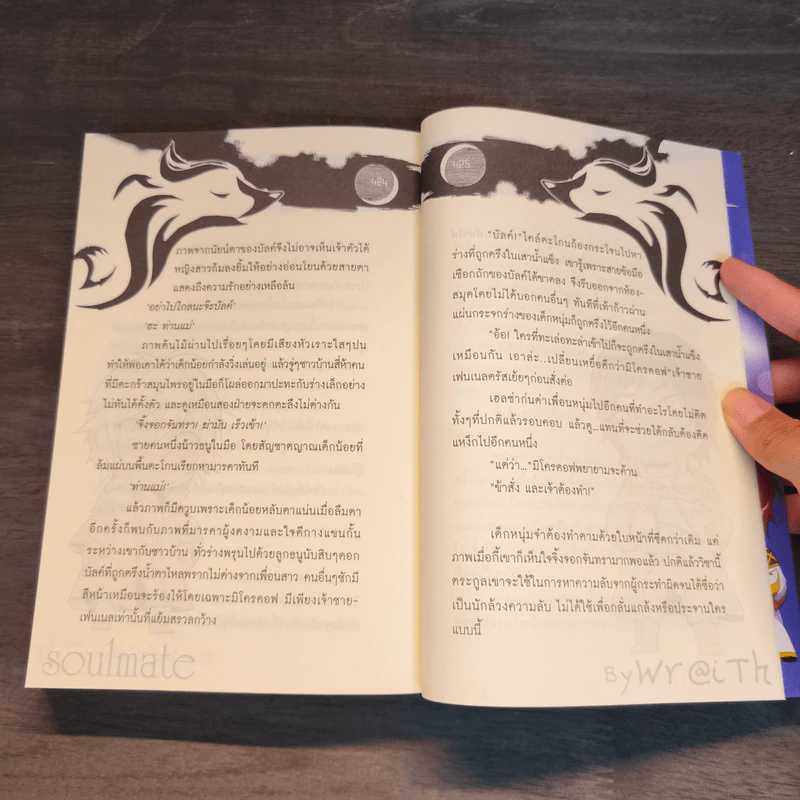 424
ภาพจากนัยน์ตาของบัลค์จึงไม่อาจเห็นเจ้าตัวได้
หญิงสาวก้มลงยิ้มให้อย่างอ่อนโยนด้วยสายตา
แสดงถึงความรักอย่างเหลือล้น
'อย่าไปไกลนะจ๊ะบัลค์'
'ฮะ ท่านแม่'
ภาพต้นไม้ผ่านไปเรื่อยๆโดยมีเสียงหัวเราะใสๆปน
ทำให้พอเดาได้ว่าเด็กน้อยกำลังวิ่งเล่นอยู่ แล้วจู่ๆชาวบ้านสี่ห้าคน
ที่มีตะกร้าสมุนไพรอยู่ในมือก็โผล่ออกมาปะทะกับร่างเล็กอย่าง
ไม่ทันได้ตั้งตัว และดูเหมือนสองฝ่ายจะตกตะลึงไม่ต่างกัน
'จิ้งจอกจันทรา! ฆ่ามัน เร็วเข้า!'
ชายคนหนึ่งน้าวธนูในมือ โดยสัญชาตญาณเด็กน้อยที่
ล้มแผ่บนพื้นตะโกนเรียกหามารดาทันที
'ท่านแม่!'
แล้วภาพก็มืดวูบเพราะเด็กน้อยหลับตาแน่นเมื่อลืมตา
อีกครั้งก็พบกับภาพที่มารดาผู้งดงามและใจดีกางแขนกั้น
ระหว่างเขากับชาวบ้าน ทั่วร่างพรุนไปด้วยลูกธนูนับสิบๆดอก
บัลค์ที่ถูกตรึงน้ำตาไหลพรากไม่ต่างจากเพื่อนสาว คนอื่นๆชักมี
สีหน้าเหมือนจะร้องไห้โดยเฉพาะมิโครคอฟ มีเพียงเจ้าชาย-
เฟนเนลเท่านั้นที่แย้มสรวลกว้าง
soulmate
425
"บัลค์!"ไคล์ตะโกนก้องกระโจนไปหา
ร่างที่ถูกตรึงในเสาน้ำแข็ง เขารู้เพราะสายข้อมือ
เชือกถักของบัลค์ได้ขาดลง จึงรีบออกจากห้อง-
สมุดโดยไม่ได้บอกคนอื่นๆ ทันทีที่เท้าก้าวผ่าน
แผ่นกระจกร่างของเด็กหนุ่มก็ถูกตรึงไว้อีกคนหนึ่ง
"อ้อ! ใครที่ทะเล่อทะล่าเข้าไปก็จะถูกตรึงในเสาน้ำแข็ง
เหมือนกัน เอาล่ะ..เปลี่ยนเหยื่อดีกว่ามิโครคอฟ"เจ้าชาย
เฟนเนลตรัสเย้ยๆก่อนสั่งต่อ
เฮลซ่าก่นด่าเพื่อนหนุ่มไปอีกคนที่ทำอะไรโดยไม่คิด
ทั้งๆที่ปกติแล้วรอบคอบ แล้วดู...แทนที่จะช่วยได้กลับต้องติด
แหง็กไปอีกคนหนึ่ง
"แต่ว่า..."มิโครคอฟพยายามจะค้าน
"ข้าสั่ง และเจ้าต้องทำ!"
เด็กหนุ่มจำต้องทำตามด้วยใบหน้าที่ซีดกว่าเดิม แค่
ภาพเมื่อกี้เขาก็เห็นใจจิ้งจอกจันทรามากพอแล้ว ปกติแล้ววิชานี้
ตระกูลเขาจะใช้ในการหาความลับจากผู้กระทำผิดจนได้ชื่อว่า
เป็นนักล้วงความลับ ไม่ได้ใช้เพื่อกลั่นแกล้งหรือประจานใคร
แบบนี้
ByWr@iTh